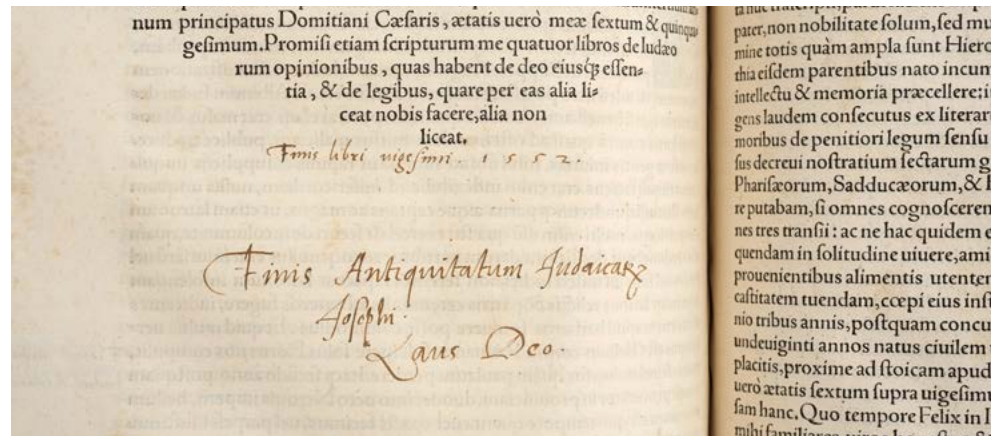 num principatus Domitiani Cæsaris, ætatis uerò meæ ſextum & quinqua
geſimum. Promiſi etiam ſcripturum me quatuor libros de Iudæo
rum opinionibus, quas habent de deo eiusq́; eſſen⸗
tia, & de legibus, quare per eas alia li⸗
ceat nobis facere, alia non
liceat.
Finis libri vigeſimi. 1552.
Finis Antiquitatum Judaicarꝝ
Joſephi.
Laus Deo.
pater, non nobilitate ſolum, ſed mu
mine totis quàm ampla ſunt Hiero
thia eiſdem parentibus nato incum
intellectu & memoria præcellere: i
gens laudem conſecutus ex literar
moribus de penitiori legum ſenſu
ſus decreui noſtratium ſectarum g
Phariſæorum, Sadducæorum, &
re putabam, ſi omnes cognoſcerem
nes tres tranſii: ac ne hac quidem e
quendam in ſolitudine uiuere, ami
prouenientibus alimentis utentem
caſtitatem tuendam, cœpi eius inſt
nio tribus annis, poſtquam concu
undeuiginti annos natus ciuilem
placitis, proxime ad ſtoicam apud
uerò ætatis ſextum ſupra uigeſimu
ſam hanc. Quo tempore Felix in I
mihi familiares